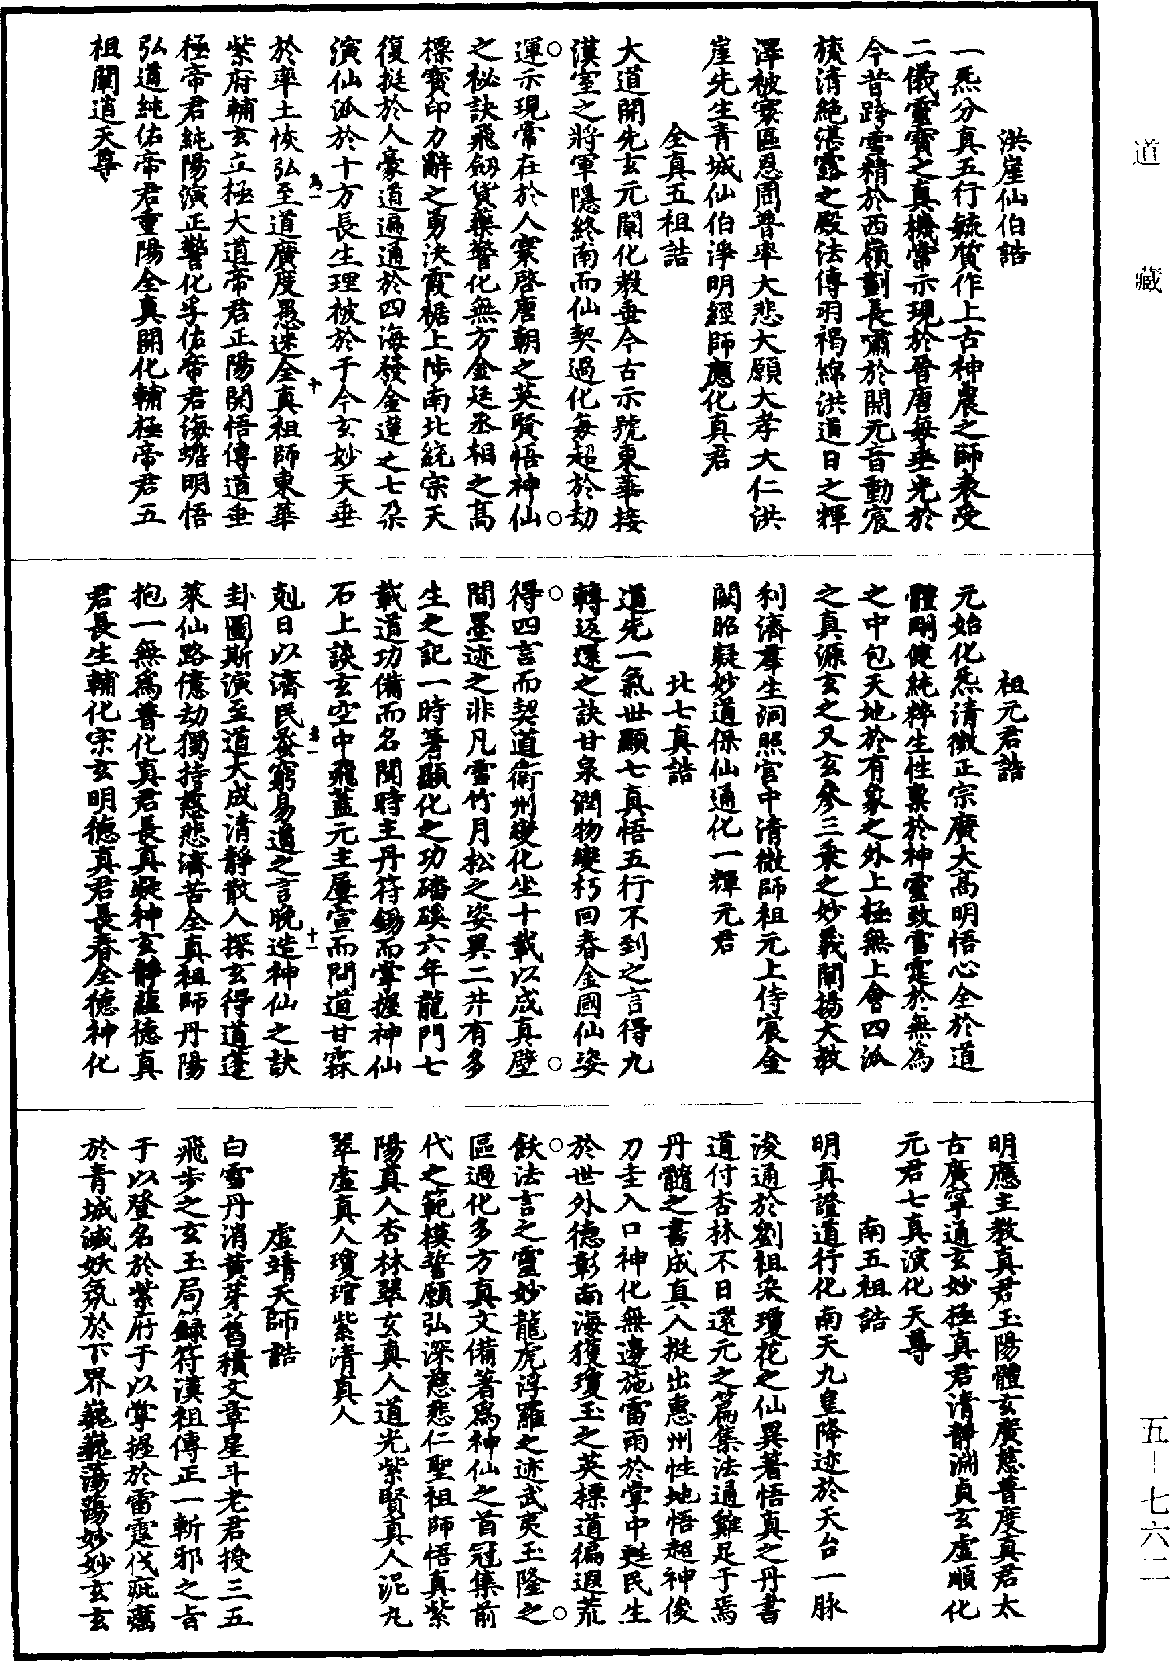 道藏
五-七六二
洪崖仙伯誥
一炁分真五行毓質作上古神農之師表受
二儀靈寶之真機常示現於晉唐每垂光於
今昔跨雪精於西嶺劃長嘯於開元音動宸
旒清絶湛露之殿法傳羽褐綿洪道日之輝
澤被寰區恩周普率大悲大願大孝大仁洪
崖先生青城仙伯淨明經師應化真君
全真五祖誥
大道開先玄元闡化教垂今古示號東華接
漢室之將軍隱終南而仙契過化每超於劫
運示現常在於人寰啓唐朝之英賢悟神仙
之祕訣飛劒貨藥警化無方金廷丞相之高
標寶印力辭之勇決霞裾上陟南北統宗天
復挺於人豪道遍通於四海發金蓮之七朶
演仙派於十方長生理被於于今玄妙天垂
於率土恢弘至道廣度愚迷全真祖師東華
紫府輔玄立極大道帝君正陽開悟傳道垂
極帝君純陽演正警化孚佑帝君海蟾明悟
弘道純佑帝君重陽全真開化輔極帝君五
祖闡道天尊
祖元君誥
元始化炁清微正宗廣大高明悟心全於道
體剛健純粹生性稟於神靈致雷霆於無為
之中包天地於有象之外上極無上會四派
之真源玄之又玄參三乘之妙義闡揚大教
利濟羣生洞照宫中清微師祖元上侍宸金
闕昭凝妙道保仙通化一輝元君
北七真誥
道先一氣世顯七真悟五行不到之言得九
轉返還之訣甘泉潤物變朽回春金國仙姿
得四言而契道衛州變化坐十載以成真壁
間墨迹之非凡雪竹月松之姿異二井有多
生之記一時著顯化之功磻磎六年龍門七
載道功備而名聞時主丹符錫而掌握神仙
石上談玄空中飛蓋元主屢宣而問道甘霖
剋日以濟民發窮易道之言晚造神仙之訣
卦圖斯演至道大成清靜散人探玄得道蓬
萊仙路億劫獨持慈悲濟苦全真祖師丹陽
抱一無為普化真君長真凝神玄靜蘊德真
君長生輔化宗玄明德真君長春全德神化
明應主教真君玉陽體玄廣慈普度真君太
古廣寧通玄妙極真君清靜淵貞玄虛順化
元君七真演化天尊
南五祖誥
明真證道行化南天九皇降迹於天台一脉
浚通於劉祖染瓊花之仙異著悟真之丹書
道付杏林不日還元之篇集法通雞足于焉
丹髓之書成真人挺出惠州性地悟超神俊
刀圭入口神化無邊施雷雨於掌中甦民生
於世外德彰南海獲瓊玉之英標道徧遐荒
飫法言之靈妙龍虎浮羅之迹武夷玉隆之
區過化多方真文備著爲神仙之首冠集前
代之範模誓願弘深慈悲仁聖祖師悟真紫
陽真人杏林翠玄真人道光紫賢真人泥丸
翠虛真人瓊琯紫清真人
虛靖天師誥
白雪丹消黄芽舊積文章星斗老君授三五
飛步之玄玉局錄符漢祖傳正一斬邪之旨
于以登名於紫府于以掌握於雷霆伐疵癘
於青城滅妖氛於下界巍巍蕩蕩妙妙玄玄